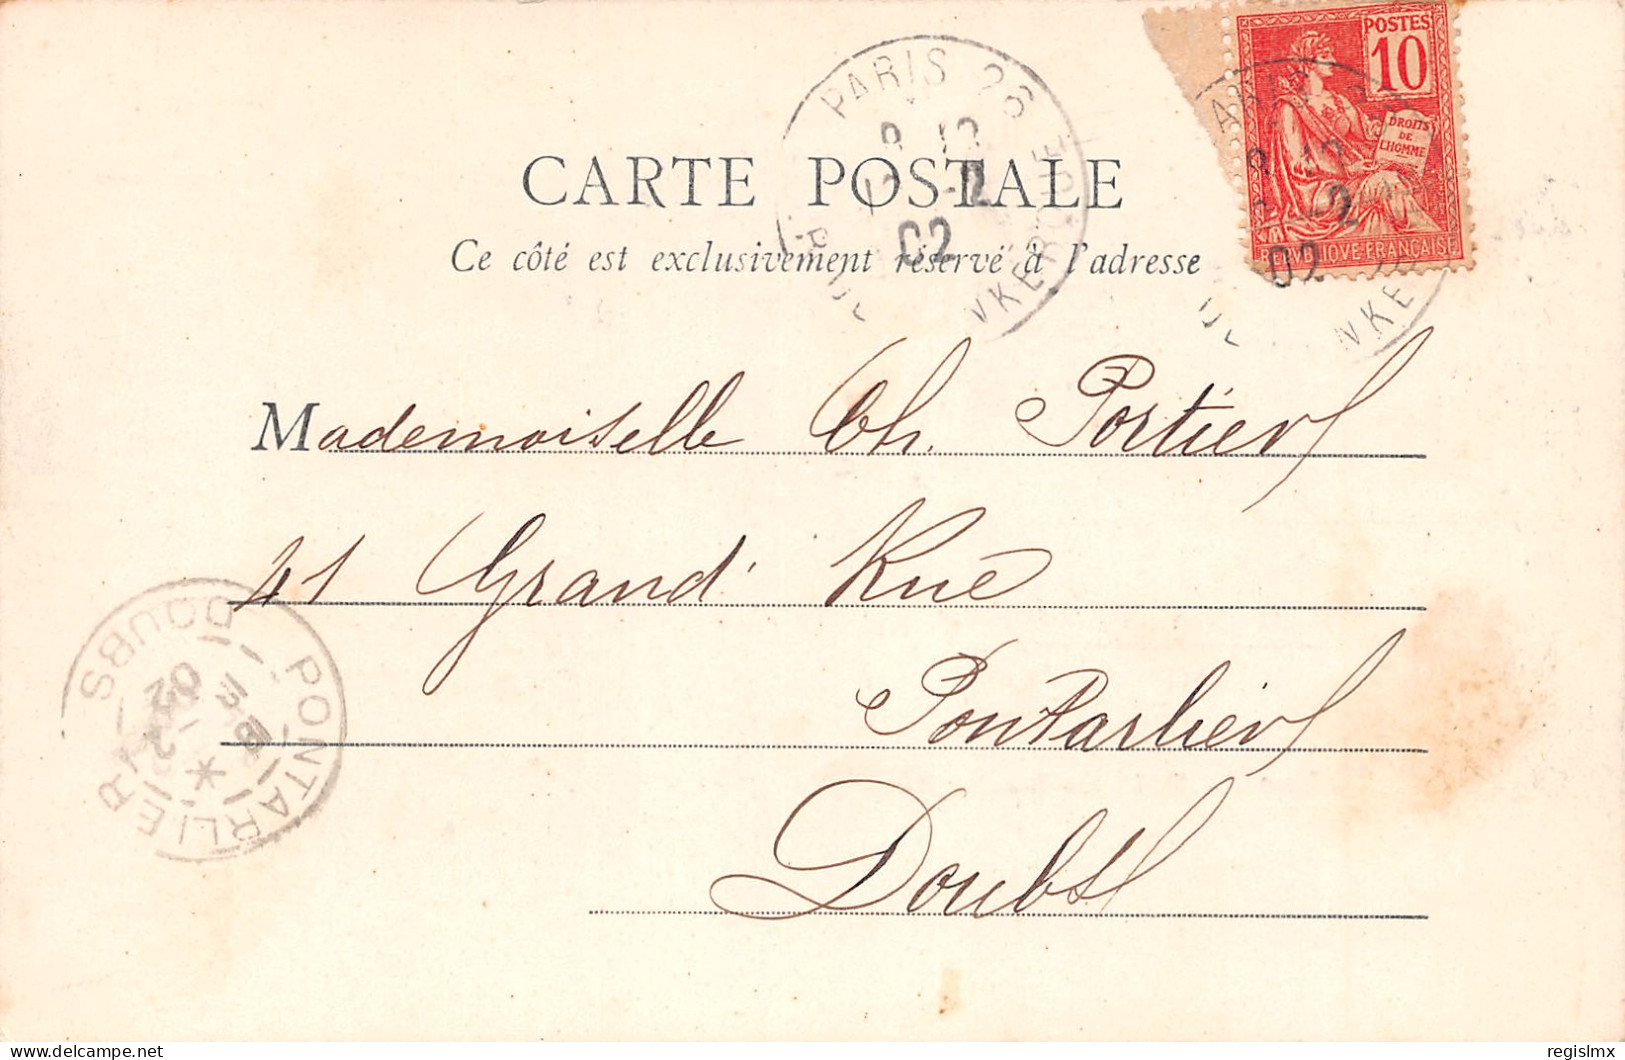 POSTES
10
DROITS
DE
L'HOMME
REPVBLIQVE FRANÇAISE
PARIS 26
02
CARTE POSTALE
Ce côté est exclusivement réservé à l'adresse
Mademoiselle Ch. Portier
41 Grand' Rue
Pontarlier
Doubs
PONTARLIER
DOUBS
02
delcampe.net
regislmx